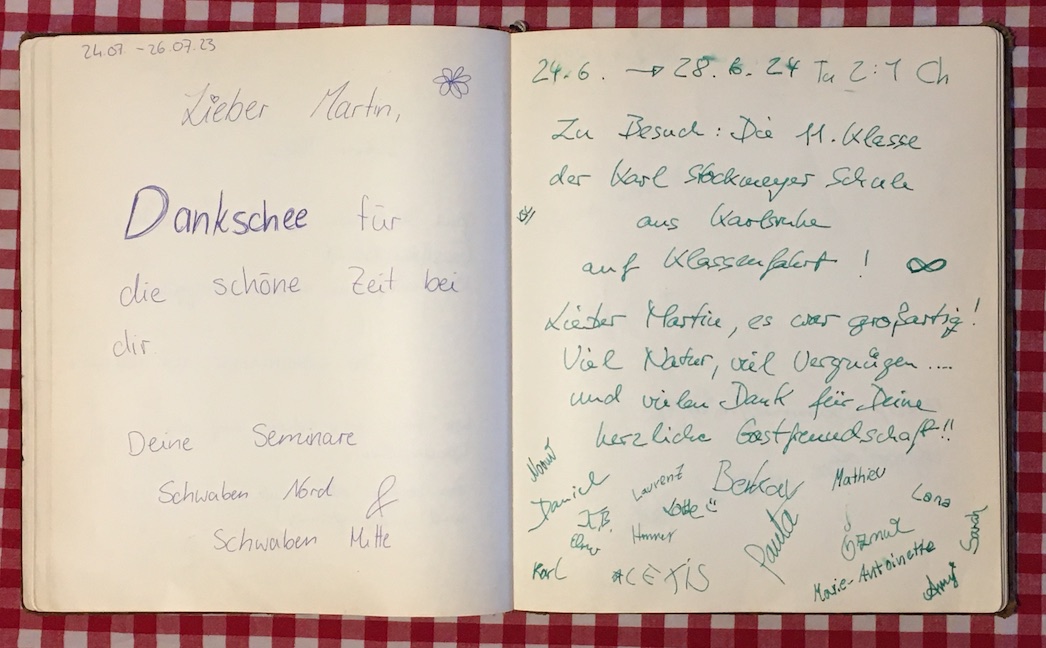 24.07 - 26.07.23
Lieber Martin,
Dankschee für
die schöne Zeit bei
dir
Deine Seminare
Schwaben Nord &
Schwaben Mitte
24.6. → 28.6.24
Zu Besuch: Die 11. Klasse
der Karl Stockmeyer Schule
aus Karlsruhe
auf Klassenfahrt! ∞
Lieber Martin, es war großartig!
Viel Natur, viel Vergnügen ....
und vielen Dank für Deine
herzliche Gastfreundschaft!!
Daniel
Laurenz
Berkay
Mathieu
Lana
Lotte
Paula
Sarah
Karl
Marie-Antoinette